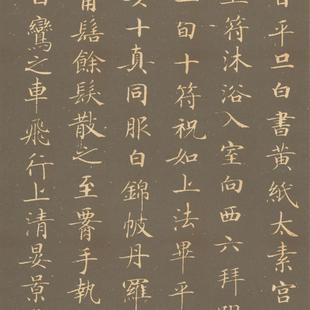 平旦白書黃紙太素宮
符沐浴入室向西六拜
旬十符祝如上法畢平
十真同服白錦帔丹羅
角髻餘髮散之至腰手執
白鸞之車飛行上清晏景